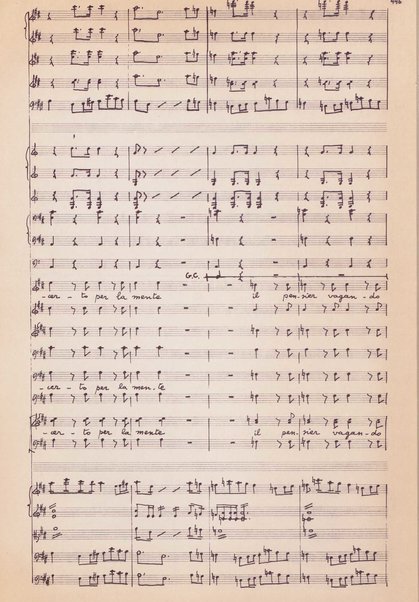 446
G.C.
-cer-to per la mente il pen-sier vagan-do
-cer-to per la men-te
-cer-to per la mente il pen-sier vagan-do